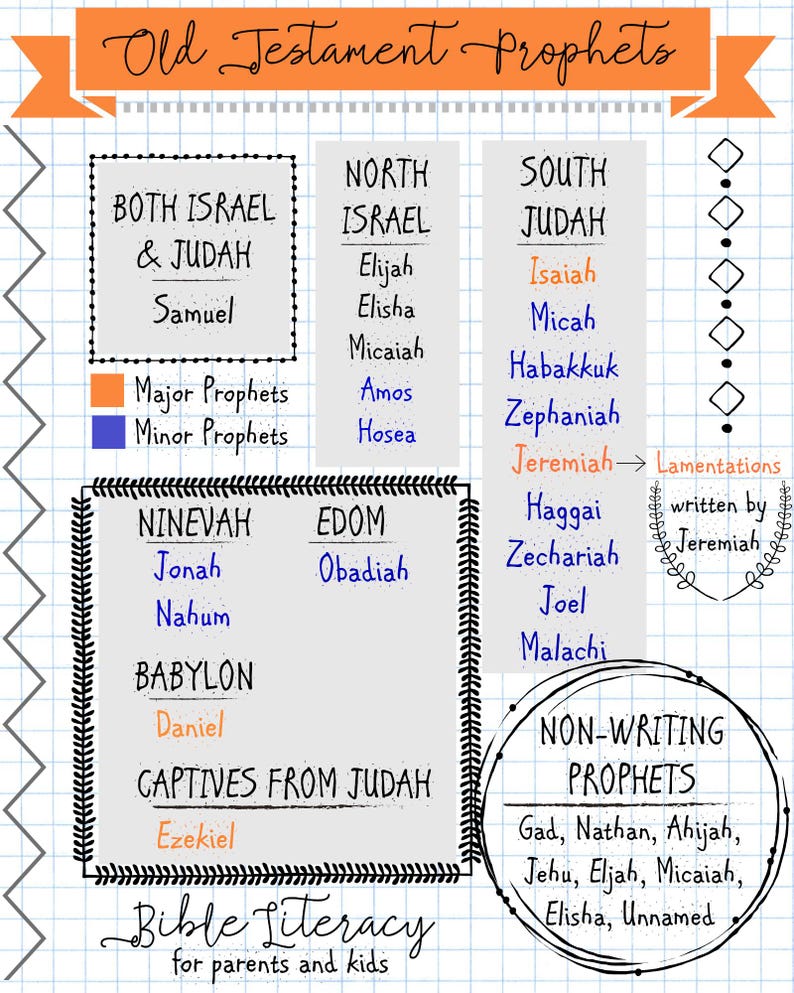 Old Testament Prophets
BOTH ISRAEL
& JUDAH
Samuel
Major Prophets
Minor Prophets
NORTH
ISRAEL
Elijah
Elisha
Micaiah
Amos
Hosea
SOUTH
JUDAH
Isaiah
Micah
Habakkuk
Zephaniah
Jeremiah → Lamentations
written by
Jeremiah
Haggai
Zechariah
Joel
Malachi
NINEVAH
Jonah
Nahum
EDOM
Obadiah
BABYLON
Daniel
CAPTIVES FROM JUDAH
Ezekiel
NON-WRITING
PROPHETS
Gad, Nathan, Ahijah,
Jehu, Eljah, Micaiah,
Elisha, Unnamed
Bible Literacy
for parents and kids